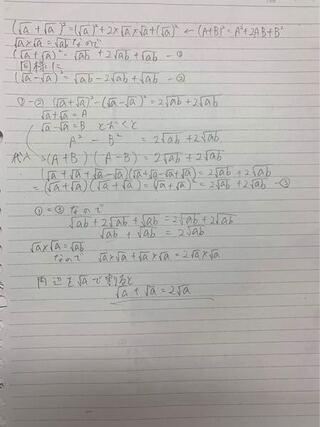 (√a + √a)² = (√a)² + 2×√a×√a + (√a)² ← (A+B)² = A² + 2AB + B²
√a×√a = √ab なので
(√a + √a)² = √ab + 2√ab + √ab - ①
同様に
(√a - √a)² = √ab - 2√ab + √ab - ②
① - ② (√a + √a)² - (√a - √a)² = 2√ab + 2√ab
√a + √a = A
√a - √a = B とおくと
A² - B² = 2√ab + 2√ab
代入 = (A + B)(A - B) = 2√ab + 2√ab
(√a + √a + √a - √a)(√a + √a - √a + √a) = 2√ab + 2√ab
= (√a + √a)(√a + √a) = (√a + √a)² = 2√ab + 2√ab - ③
① = ③ なので
√ab + 2√ab + √ab = 2√ab + 2√ab
√ab + √ab = 2√ab
√a×√a = √ab
なので √a×√a + √a×√a = 2√a×√a
両辺を√aで割ると
√a + √a = 2√a